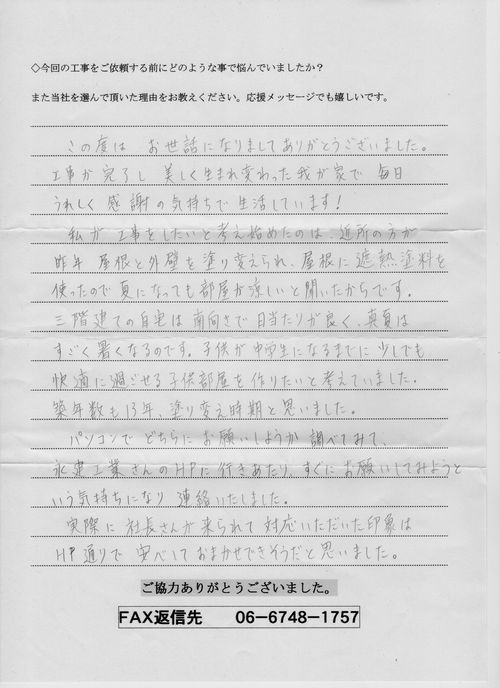 ◇今回の工事をご依頼する前にどのような事で悩んでいましたか？
また当社を選んで頂いた理由をお教えください。応援メッセージでも嬉しいです。
この度は お世話になりましてありがとうございました。
工事が完了し 美しく生まれ変わった我が家で 毎日
うれしく 感謝の気持ちで 生活しています!
私が 工事をしたいと考え始めたのは、近所の方が
昨年 屋根と外壁を塗り変えられ、屋根に 遮熱塗料を
使ったので 夏になっても部屋が涼しいと聞いたからです。
三階建ての自宅は南向きで日当たりが良く、真夏は
すごく暑くなるのです。子供が中学生になるまでに 少しでも
快適に過ごせる子供部屋を作りたいと考えていました。
築年数も13年、塗り変え時期と思いました。
パソコンで どちらに お願いしようか 調べてみて、
永建工業さんのHPに行きあたり、すぐにお願いしてみようと
いう気持ちになり 連絡いたしました。
実際に 社長さんが来られて 対応いただいた印象は
HP通りで 安心しておまかせできそうだと思いました。
ご協力ありがとうございました。
FAX返信先 06-6748-1757